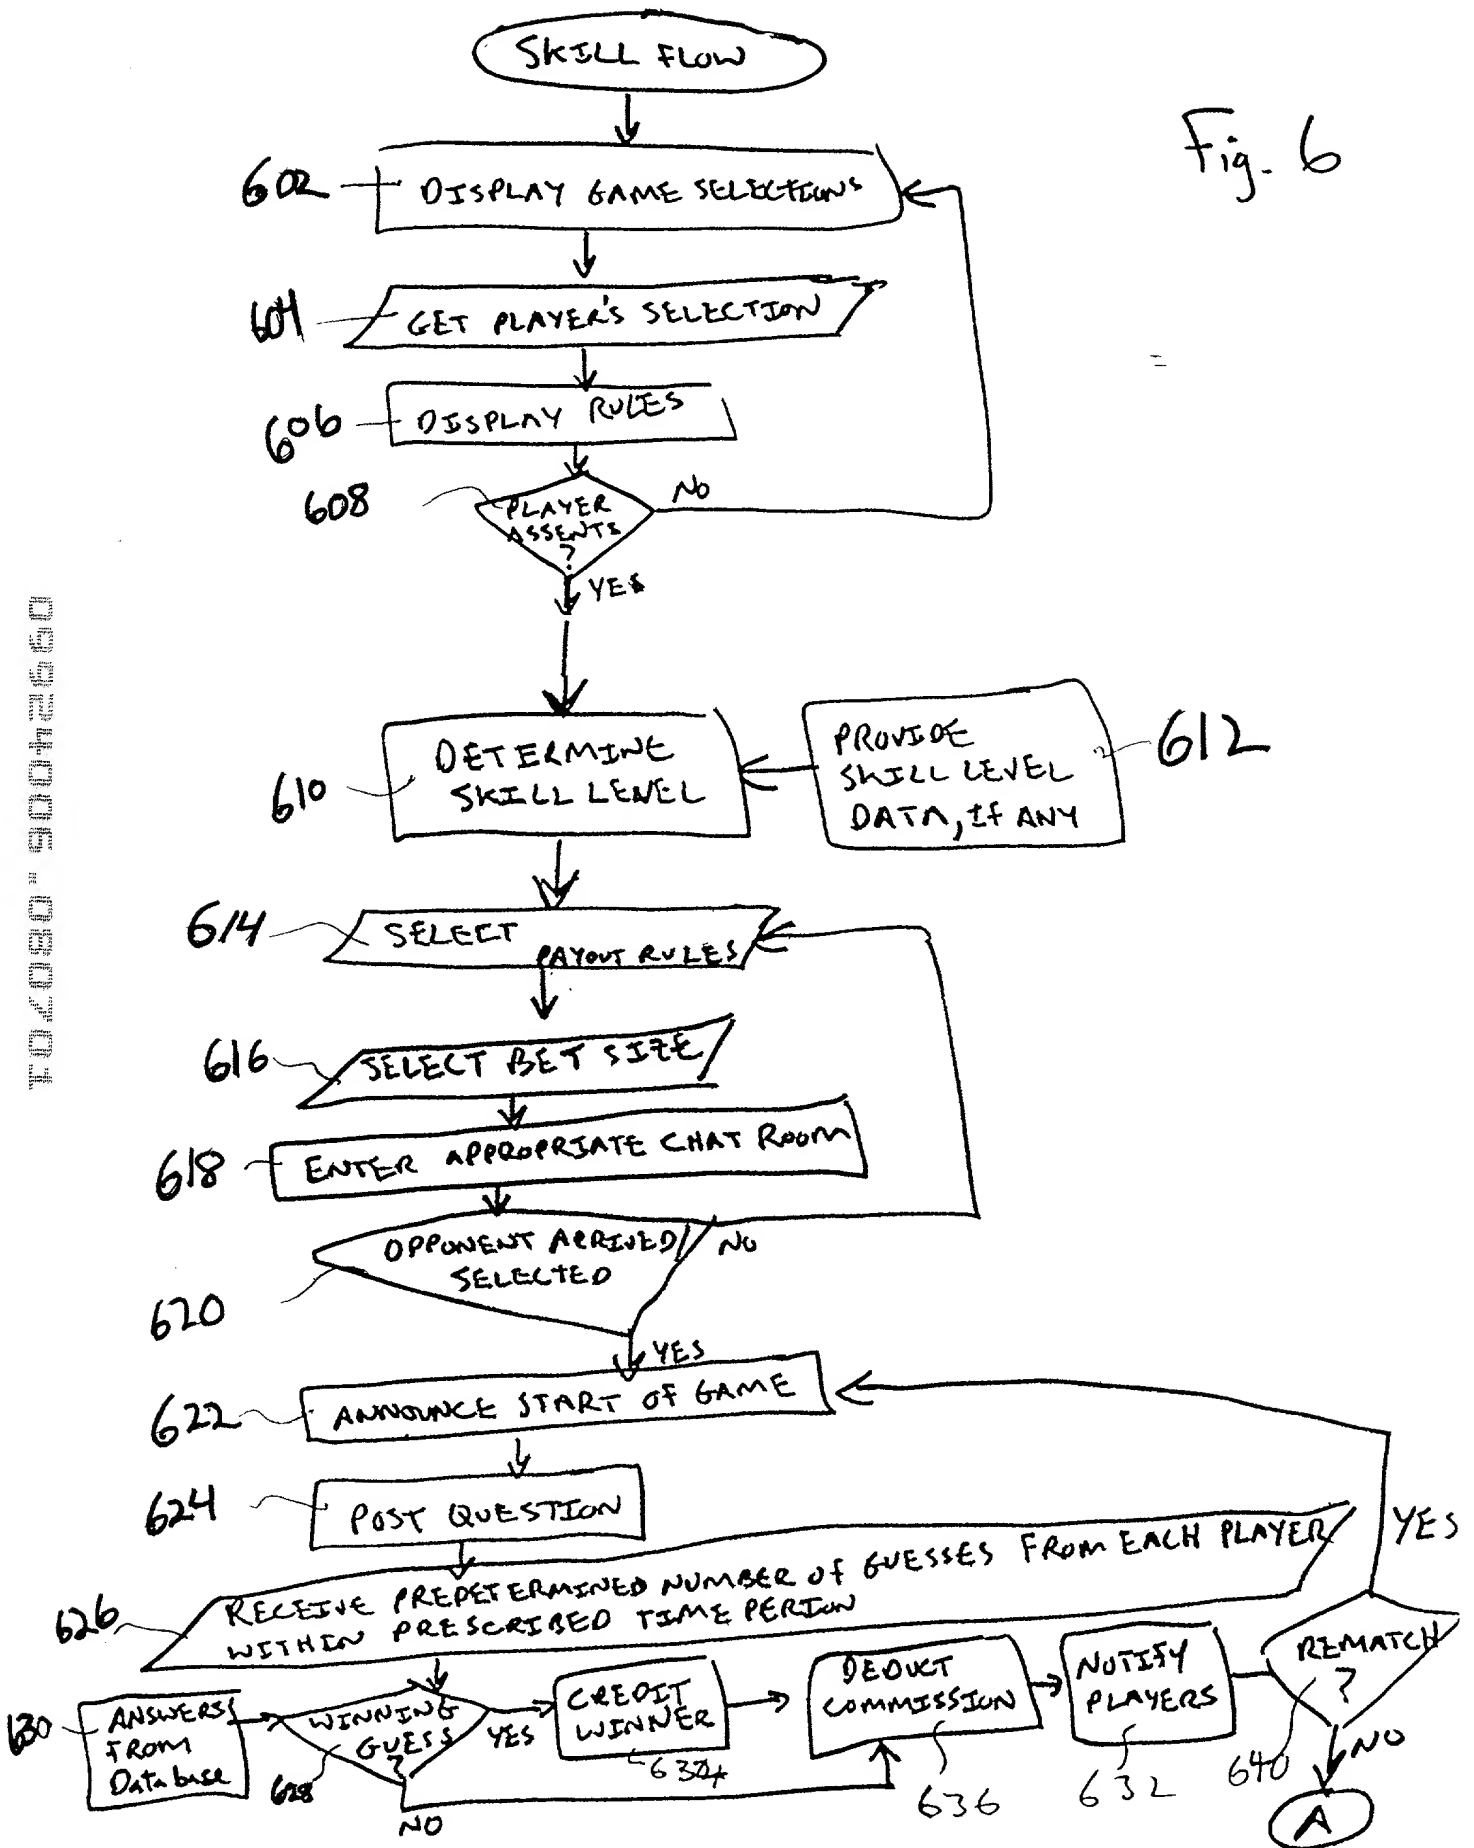 SKILL FLOW
Fig. 6
602
DISPLAY GAME SELECTIONS
604
GET PLAYER'S SELECTION
606
DISPLAY RULES
608
PLAYER
ASSENTS
?
NO
YES
610
DETERMINE
SKILL LEVEL
PROVIDE
SKILL LEVEL
DATA, If ANY
612
614
SELECT
PAYOUT RULES
616
SELECT BET SIZE
618
ENTER APPROPRIATE CHAT ROOM
620
OPPONENT ARRIVED/
SELECTED
NO
YES
622
ANNOUNCE START OF GAME
624
POST QUESTION
626
RECEIVE PREDETERMINED NUMBER OF GUESSES FROM EACH PLAYER
WITHIN PRESCRIBED TIME PERIOD
630
ANSWERS
FROM
Database
WINNING
GUESS
?
628
YES
NO
CREDIT
WINNER
634
DEDUCT
COMMISSION
636
NOTIFY
PLAYERS
632
REMATCH
?
640
YES
NO
A
09924006.080701